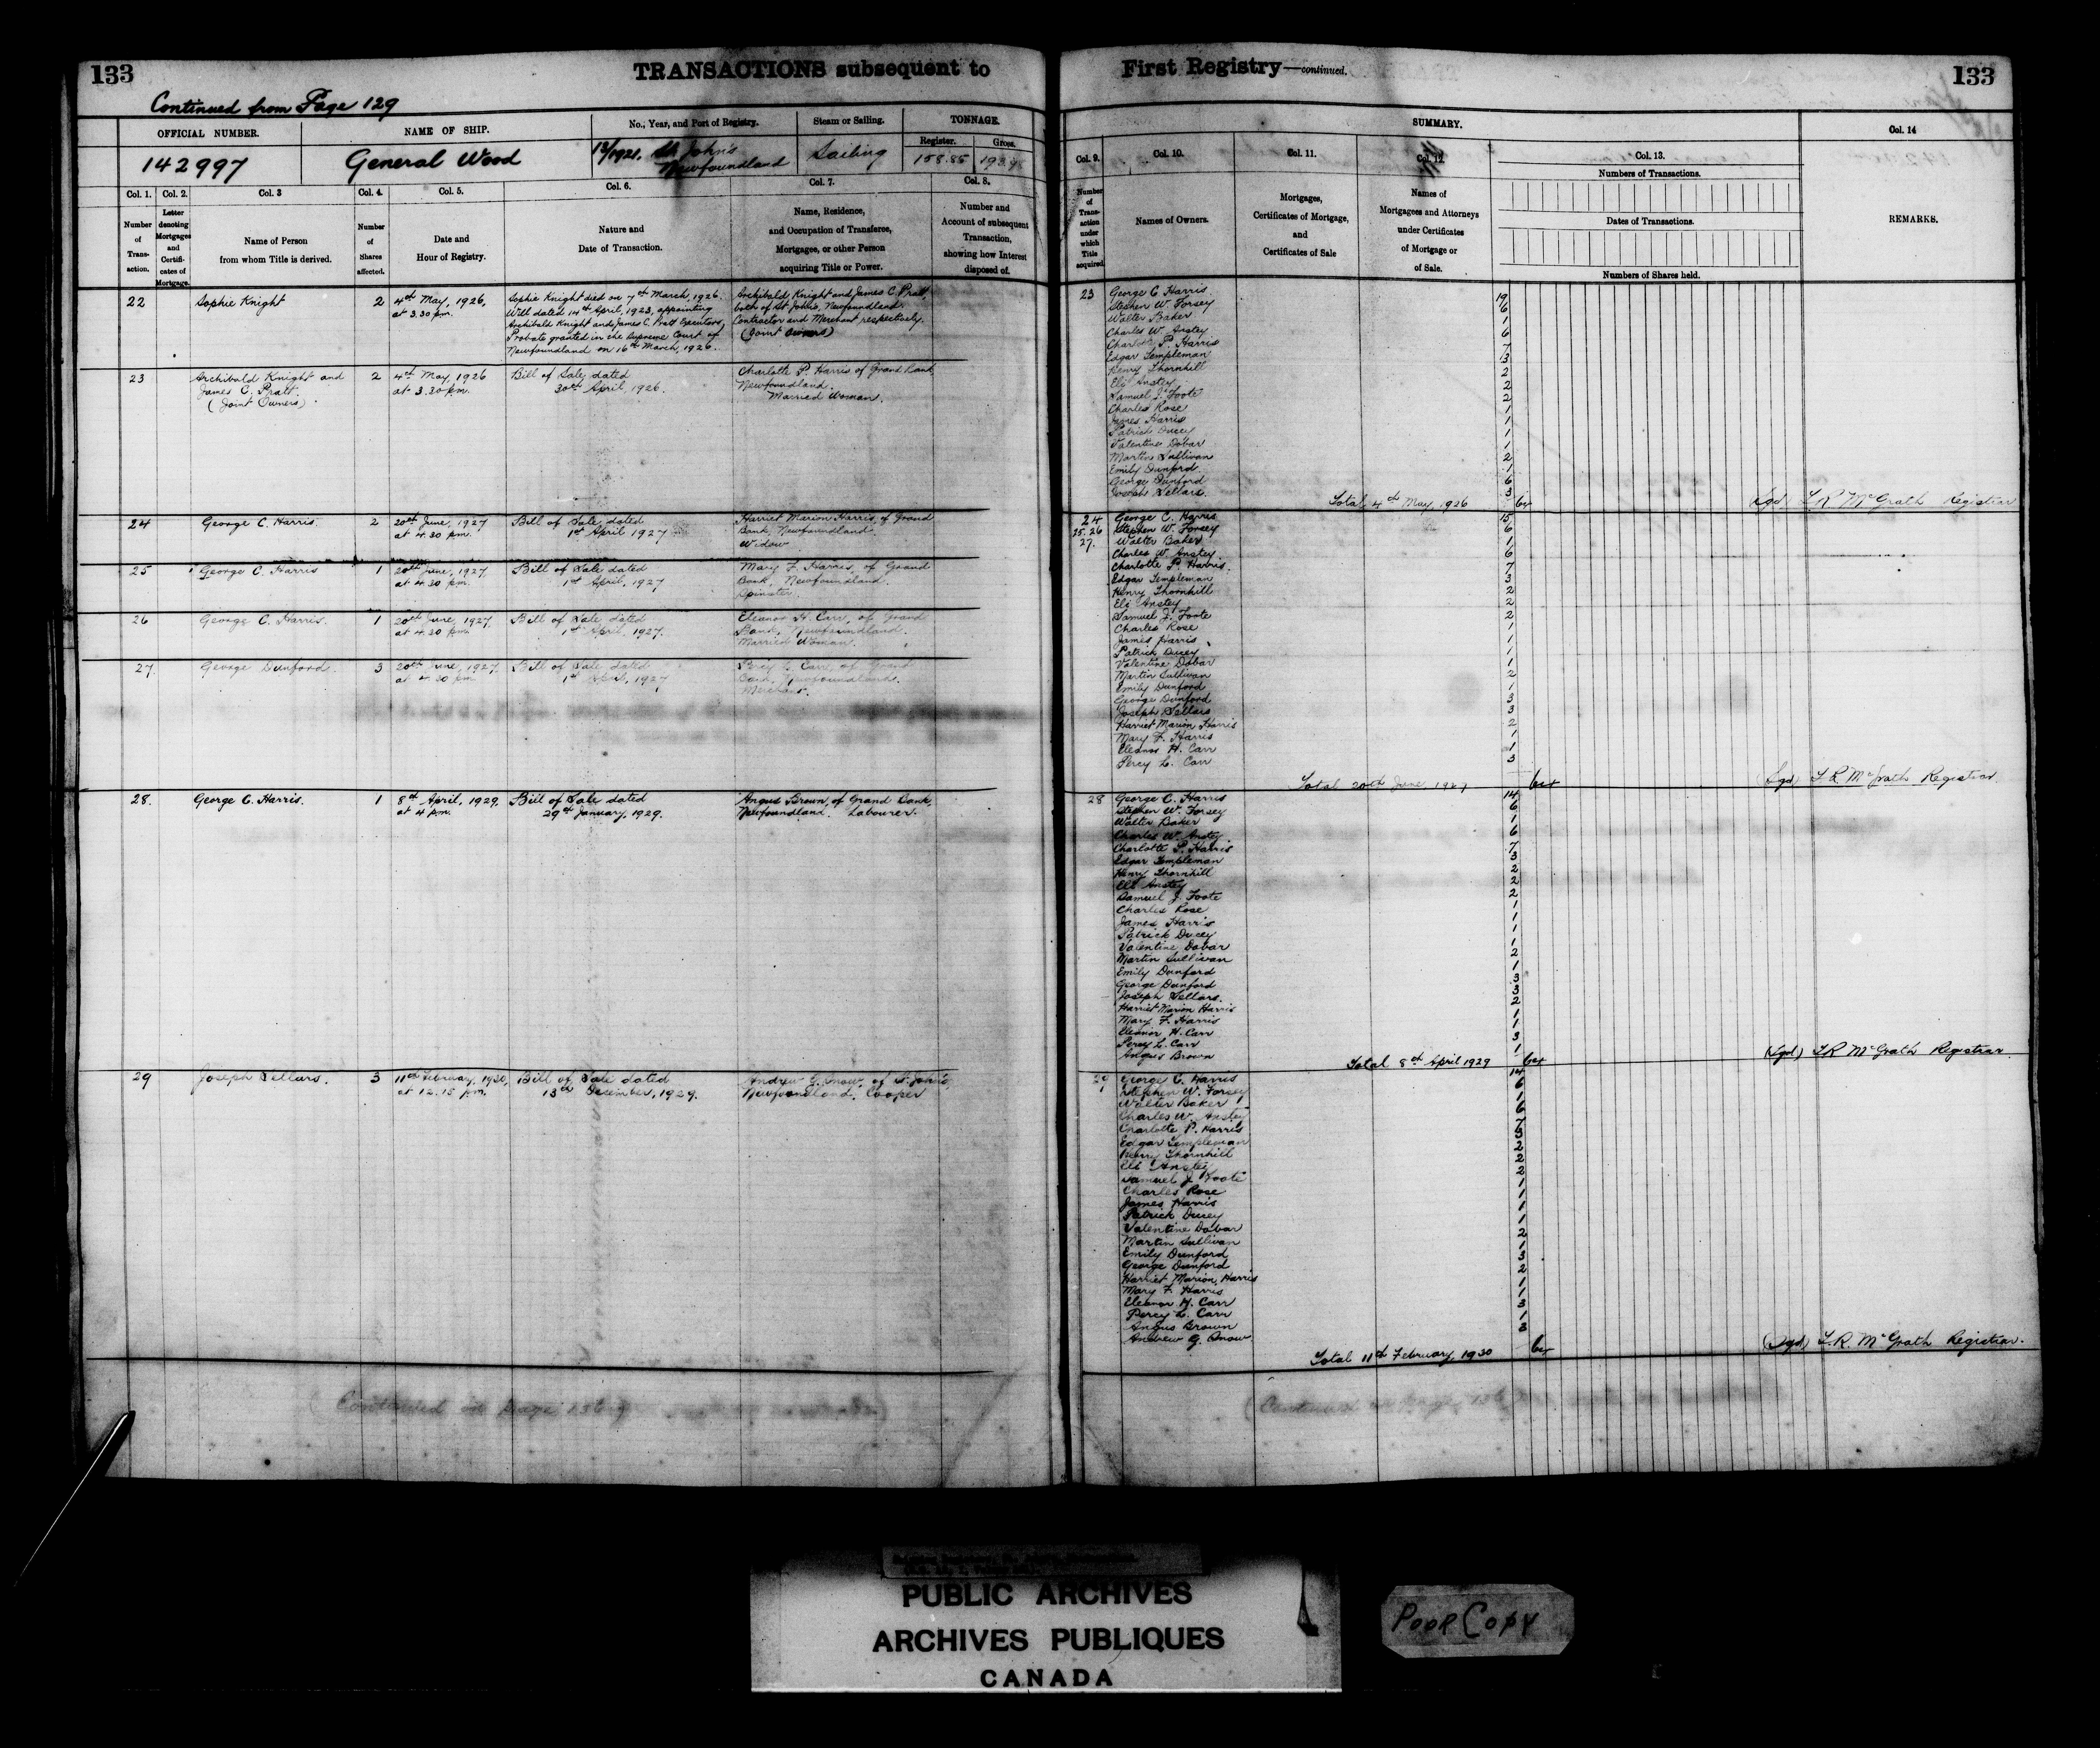 133
TRANSACTIONS subsequent to
First Registry—continued.
133
Continued from Page 129
OFFICIAL NUMBER.
NAME OF SHIP.
No., Year, and Port of Registry.
Steam or Sailing.
TONNAGE.
Register.
Gross.
142997
General Wood
13/1921. St Johns
Newfoundland
Sailing
158.85
Col. 1.
Col. 2.
Col. 3
Col. 4.
Col. 5.
Col. 6.
Col. 7.
Col. 8.
Number
of
Trans-
action.
Letter
denoting
Mortgages
and
Certifi-
cates of
Mortgage.
Name of Person
from whom Title is derived.
Number
of
Shares
affected.
Date and
Hour of Registry.
Nature and
Date of Transaction.
Name, Residence,
and Occupation of Transferee,
Mortgagee, or other Person
acquiring Title or Power.
Number and
Account of subsequent
Transaction,
showing how Interest
disposed of.
SUMMARY.
Col. 9.
Col. 10.
Col. 11.
Col. 12.
Col. 13.
Col. 14
Number
of
Trans-
action
under
which
Title
acquired
Names of Owners.
Mortgages,
Certificates of Mortgage,
and
Certificates of Sale
Names of
Mortgagees and Attorneys
under Certificates
of Mortgage or
of Sale.
Numbers of Transactions.
Dates of Transactions.
Numbers of Shares held.
REMARKS.
22
Sophie Knight
2
4th May, 1926,
at 3.30 pm.
Sophie Knight died on 7th March, 1926.
Will dated 14th April, 1923, appointing
Archibald Knight and James C. Pratt Executors,
Probate granted in the Supreme Court of
Newfoundland on 16th March, 1926.
Archibald Knight and James C. Pratt,
both of St John's, Newfoundland.
Contractor and Merchant respectively.
(Joint Owners)
23
Archibald Knight and
James C. Pratt.
(Joint Owners)
2
4th May, 1926
at 3.30 pm.
Bill of Sale, dated
30th April, 1926.
Charlotte P. Harris of Grand Bank
Newfoundland.
Married Woman.
24
George C. Harris.
2
20th June, 1927
at 4.30 pm.
Bill of Sale, dated
1st April 1927
Harriet Marion Harris, of Grand
Bank, Newfoundland.
Widow
25
George C. Harris
1
20th June, 1927,
at 4.30 pm.
Bill of Sale dated
1st April, 1927
Mary F. Harris, of Grand
Bank, Newfoundland.
Spinster.
26
George C. Harris.
1
20th June, 1927
at 4.30 pm.
Bill of Sale dated
1st April, 1927.
Eleanor H. Carr, of Grand
Bank, Newfoundland.
Married Woman.
27
George Dunford.
3
20th June, 1927.
at 4.30 pm
Bill of Sale dated
1st April, 1927
Percy L. Carr, of Grand
Bank, Newfoundland.
Merchant.
28.
George C. Harris.
1
8th April, 1929.
at 4 pm.
Bill of Sale dated
29th January, 1929.
Angus Brown, of Grand Bank,
Newfoundland. Labourer.
29
Joseph Sellars.
3
11th February, 1930,
at 12.15 pm.
Bill of Sale dated
13th December, 1929.
Andrew G. Snow, of St. John's,
Newfoundland, Cooper
(Continued on page 136)
23
George C Harris 19
Stephen W. Forsey 6
Walter Baker 1
Charles W. Anstey 6
Charlotte P. Harris 7
Edgar Templeman 3
Henry Thornhill 2
Eli Anstey 2
Samuel J. Foote 2
Charles Rose 1
James Harris 1
Patrick Ducey 1
Valentine Dobar 1
Martin Sullivan 2
Emily Dunford 1
George Dunford 6
Joseph Sellars. 3
Total 4th May 1926 64
Sgd L R McGrath Registrar
24
25.26
27.
George C. Harris 15
Stephen W. Forsey 6
Walter Baker 1
Charles W. Anstey. 6
Charlotte P. Harris. 7
Edgar Templeman 3
Henry Thornhill 2
Eli Anstey 2
Samuel J. Foote 2
Charles Rose 1
James Harris 1
Patrick Ducey 1
Valentine Dobar 1
Martin Sullivan 2
Emily Dunford 1
George Dunford 3
Joseph Sellars 3
Harriet Marion Harris 2
Mary F. Harris 1
Eleanor H. Carr 1
Percy L. Carr 3
Total 20th June, 1927 64
(Sgd) L R. McGrath Registrar.
28
George C. Harris 14
Stephen W. Forsey 6
Walter Baker 1
Charles W. Anstey 6
Charlotte P. Harris 7
Edgar Templeman 3
Henry Thornhill 2
Eli Anstey 2
Samuel J. Foote 2
Charles Rose 1
James Harris 1
Patrick Ducey 1
Valentine Dobar 1
Martin Sullivan 2
Emily Dunford 1
George Dunford 3
Joseph Sellars. 3
Harriet Marion Harris 2
Mary F. Harris 1
Eleanor H. Carr 1
Percy L. Carr 3
Angus Brown 1
Total 8th April 1929 64
(Sgd) L R McGrath Registrar.
29
George C. Harris 14
Stephen W. Forsey 6
Walter Baker 1
Charles W. Anstey 6
Charlotte P. Harris 7
Edgar Templeman 3
Henry Thornhill 2
Eli Anstey 2
Samuel J Foote 2
Charles Rose 1
James Harris 1
Patrick Ducey 1
Valentine Dobar 1
Martin Sullivan 2
Emily Dunford 1
George Dunford 3
Harriet Marion, Harris 2
Mary F. Harris 1
Eleanor H. Carr 1
Percy L. Carr 3
Angus Brown 1
Andrew G. Snow 3
Total 11th February, 1930 64
(Sgd) L. R. McGrath Registrar.
(Continued on page 136
PUBLIC ARCHIVES
ARCHIVES PUBLIQUES
CANADA
POOR COPY